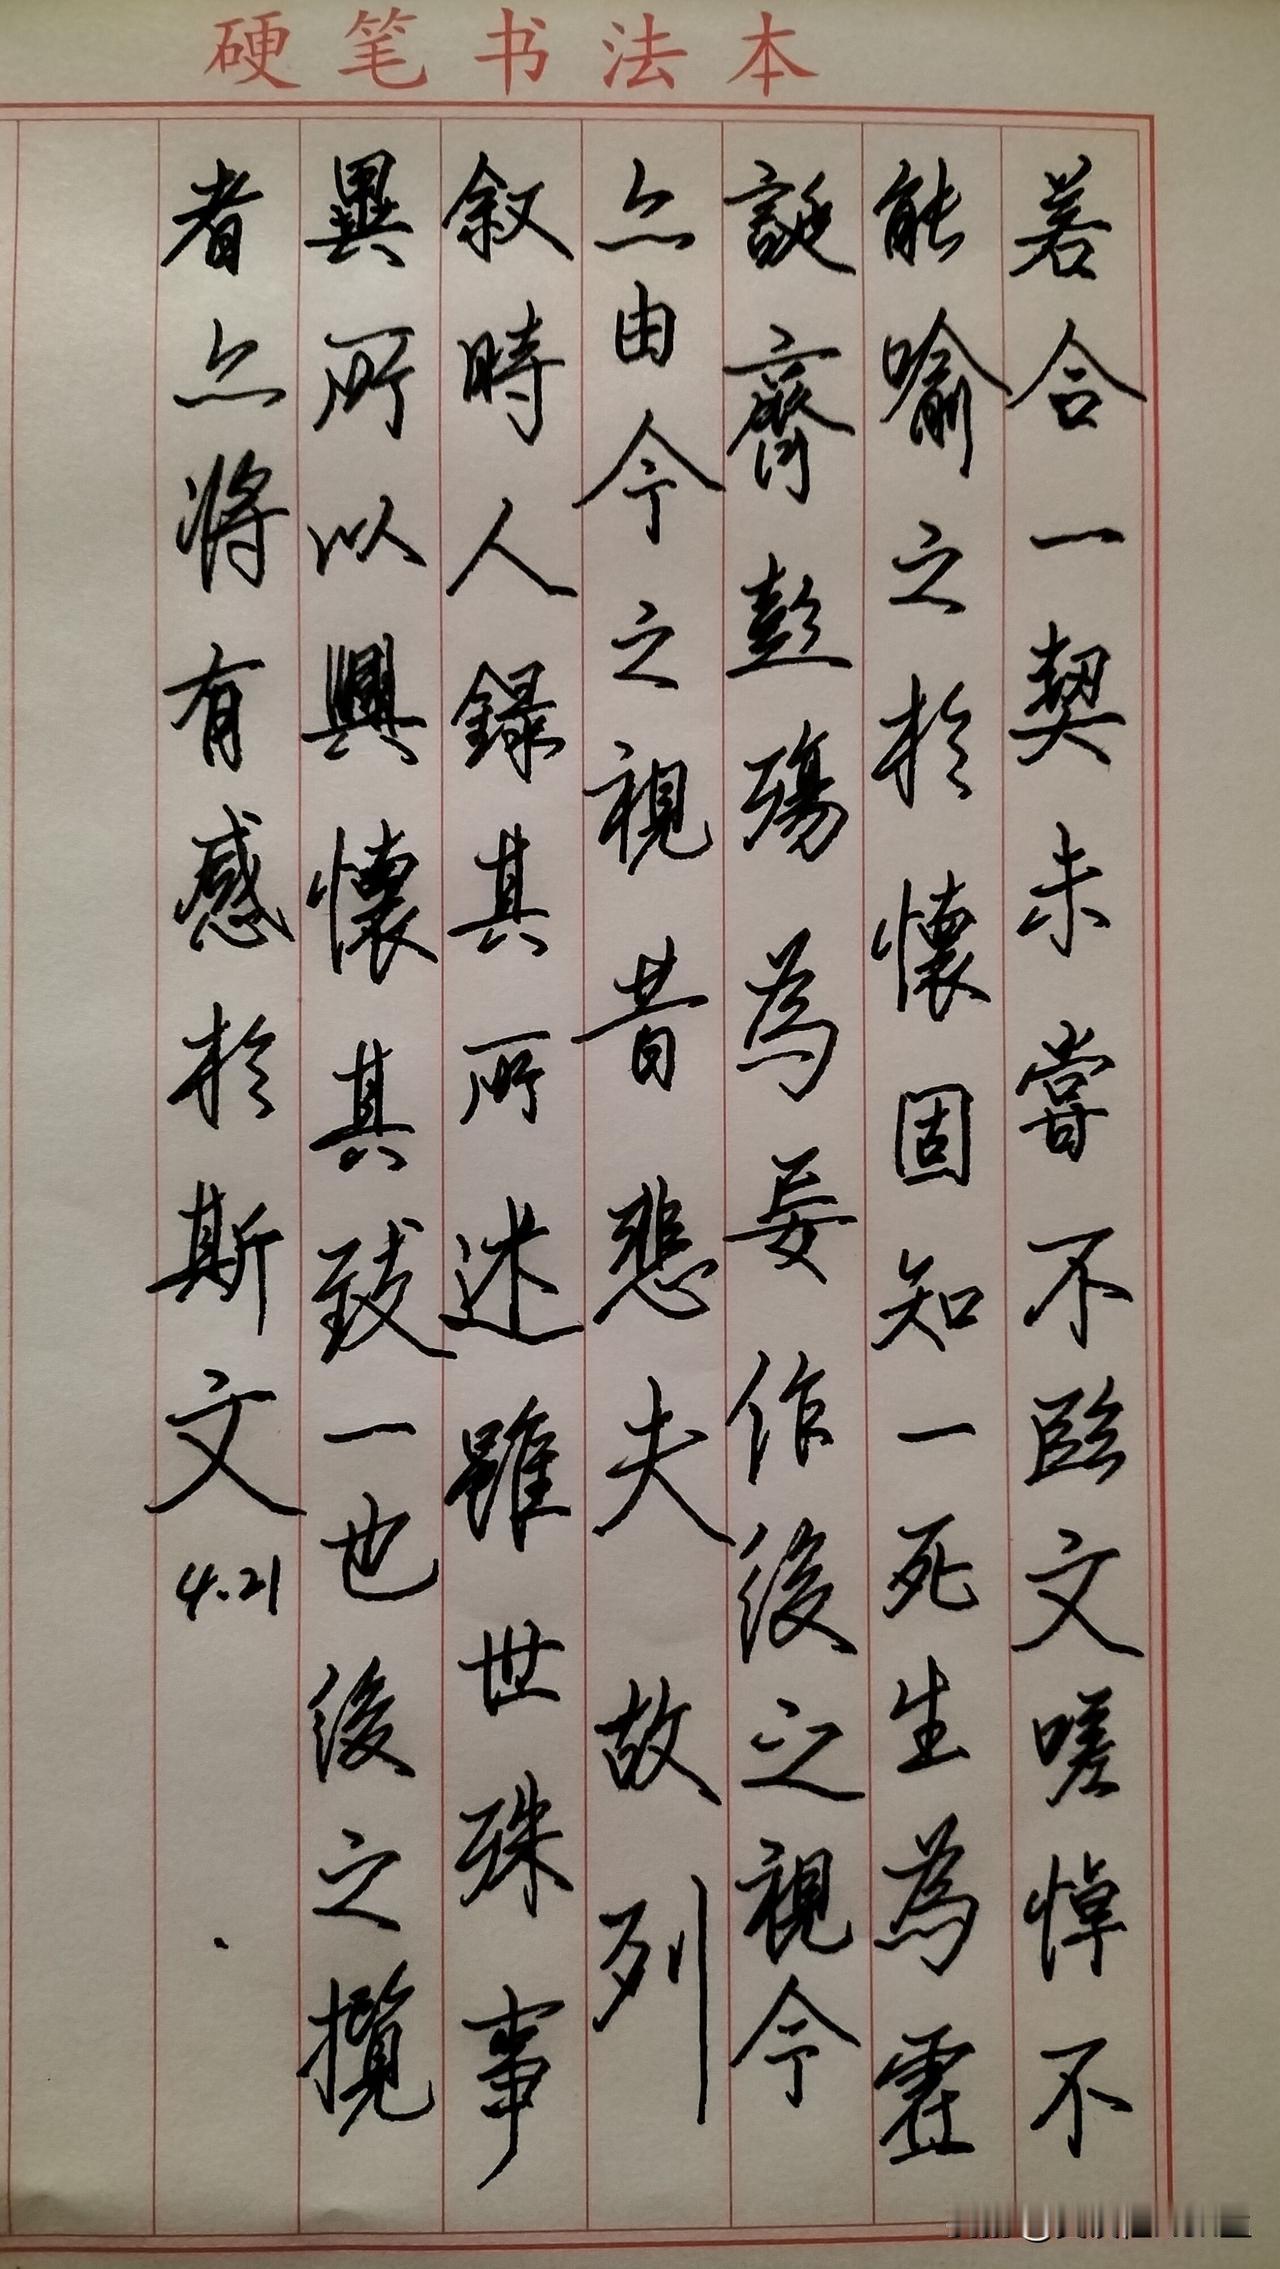 硬笔书法本
若合一契未嘗不臨文嗟悼不
能喻之於懷固知一死生為虛
誕齊彭殤為妄作後之視今
亦由今之視昔悲夫故列
叙時人錄其所述雖世殊事
異所以興懷其致一也後之攬
者亦將有感於斯文 4.21